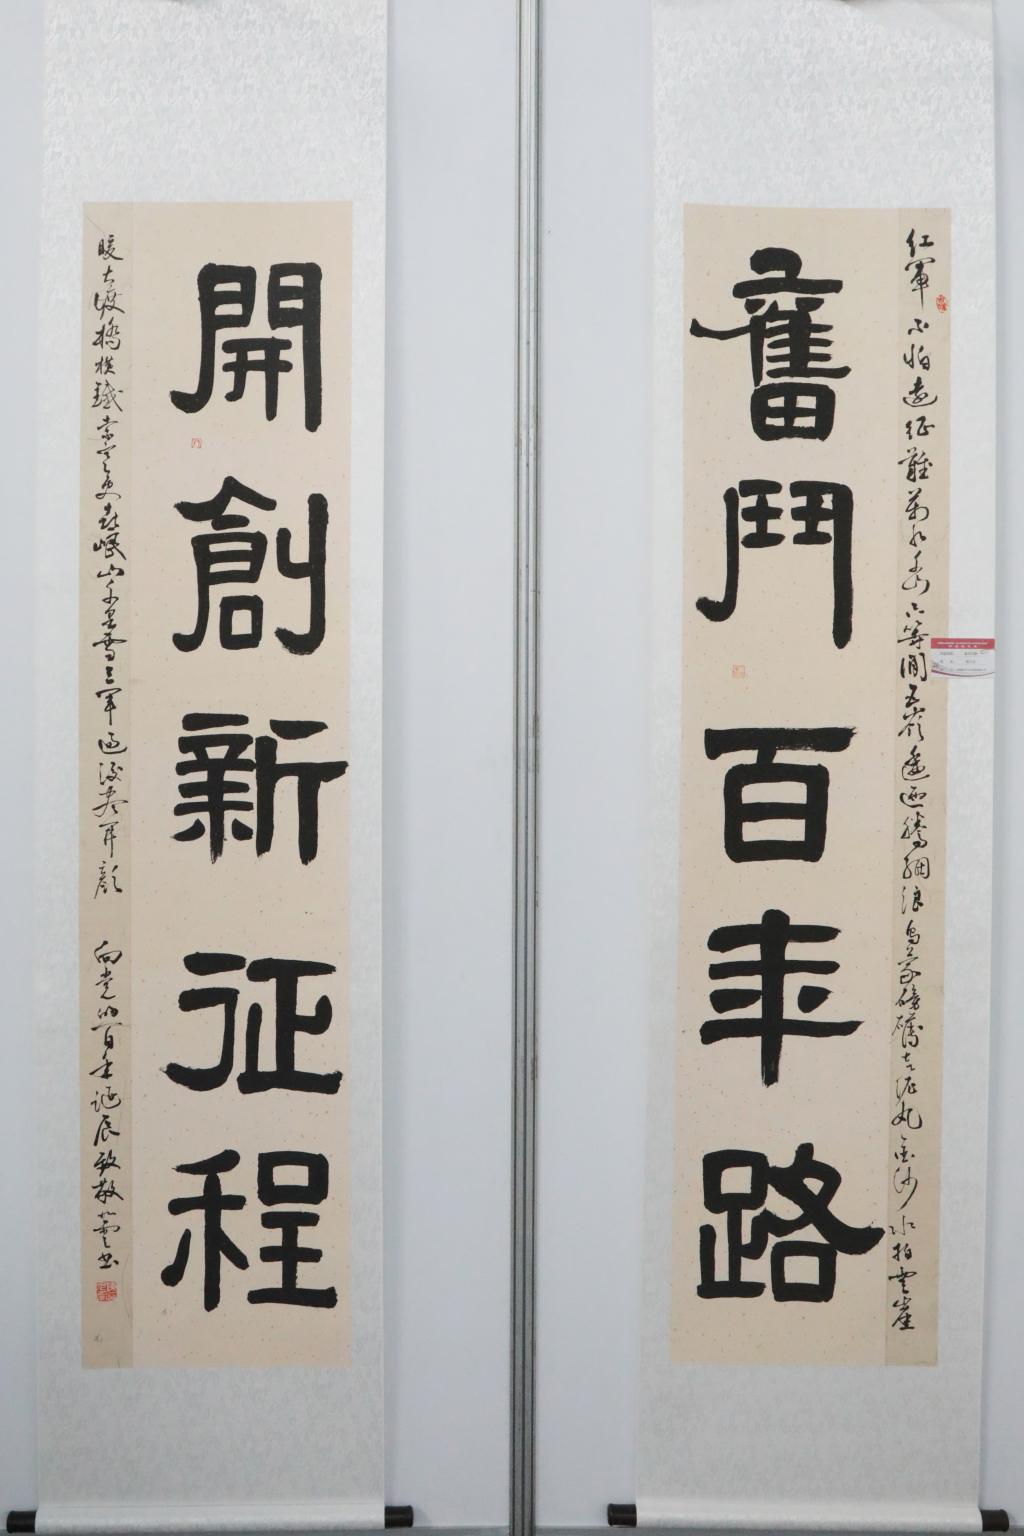 奮鬥百年路
紅軍不怕遠征難萬水千山只等閒五嶺逶迤騰細浪烏蒙磅礴走泥丸金沙水拍雲崖
開創新征程
暖大渡橋橫鐵索寒更喜岷山千里雪三軍過後盡開顏
向党的百年诞辰致敬